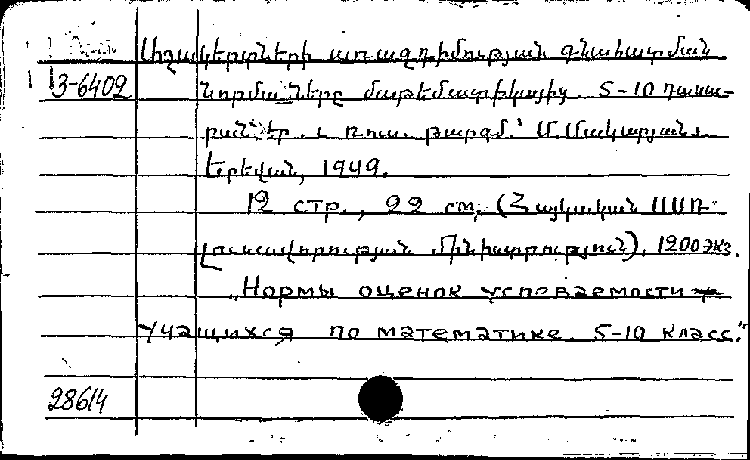 Աշակերտների առաջադիմության գնահատման
3-6402 նորմաները մաթեմատիկայից. 5-10 դասա-
րաններ. Ռուս. թարգմ.՝ Մ. Մակարյան.
Երեվան, 1949.
12 стр., 22 см, (Հայկական ՍՍՌ
լուսավորության մինիստրություն), 1200 экз.
„Нормы оценок успеваемости
учащихся по математике. 5-10 класс."
28614